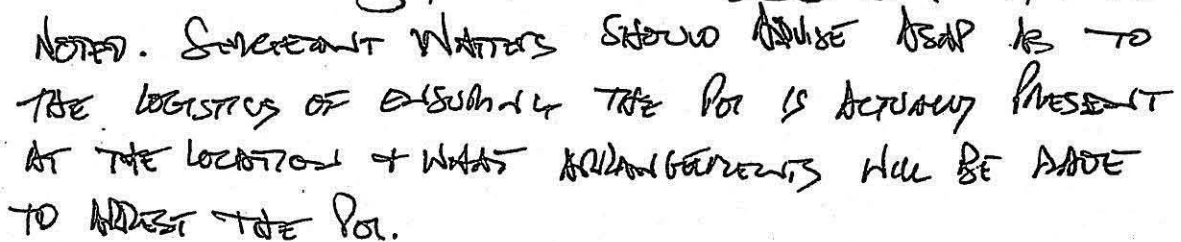 NOTED. SERGEANT WATTERS SHOULD ADVISE ASAP AS TO
THE LOGISTICS OF ENSURING THE POI IS ACTUALLY PRESENT
AT THE LOCATION + WHAT ARRANGEMENTS WILL BE MADE
TO ARREST THE POI.